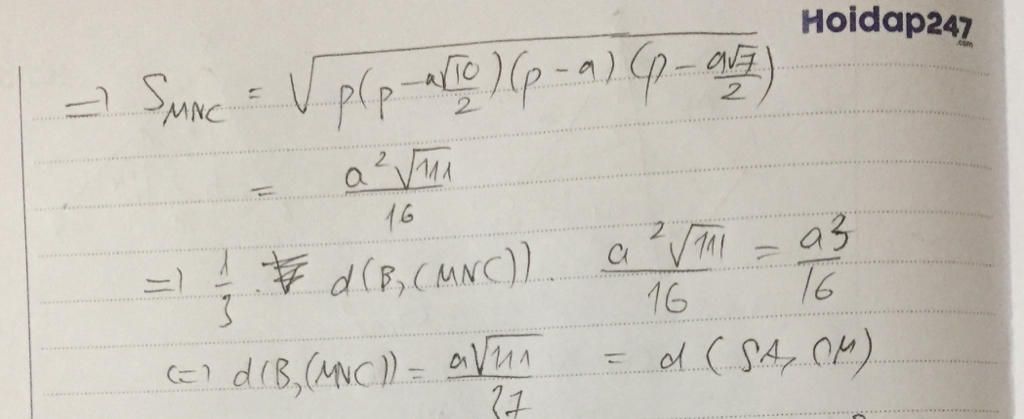 Hoidap247
.com
=> S_MNC = √(p(p - a√10/2)(p - a)(p - a√7/2))
= a²√111/16
=> 1/3 . d(B,(MNC)). a²√111/16 = a3/16
<=> d(B,(MNC)) = a√111/37 = d(SA, CM)